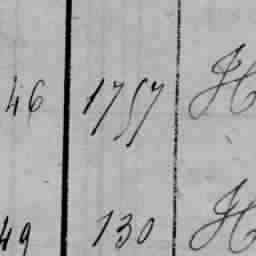 46 1757 H
49 130 H